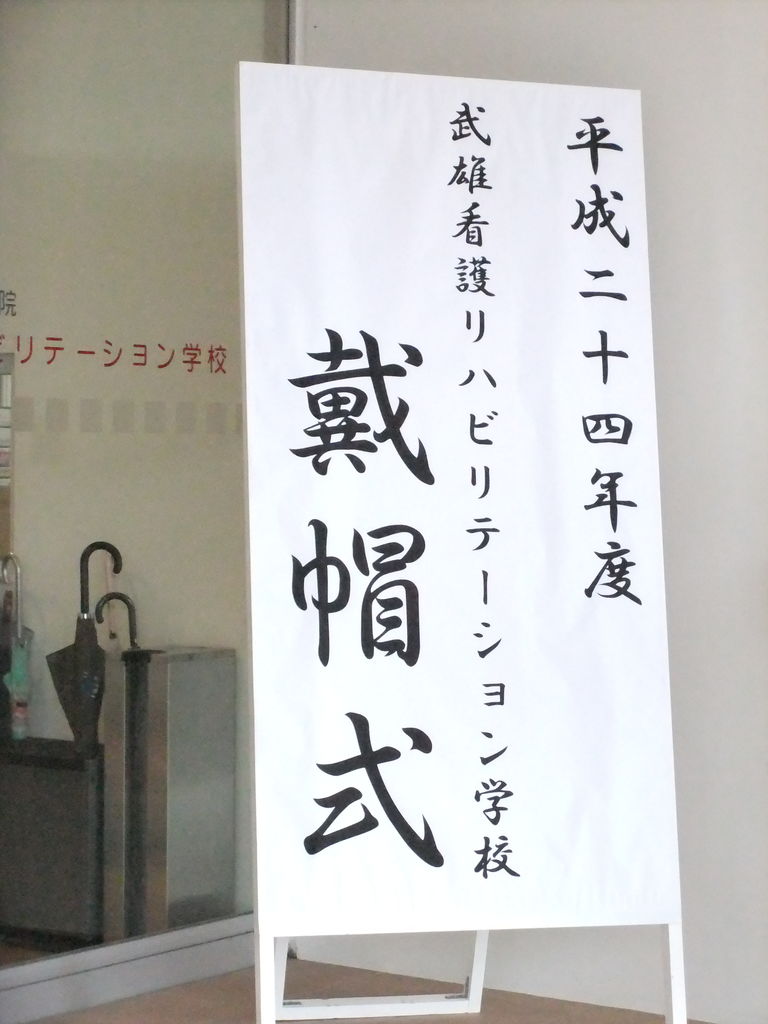 平成二十四年度
武雄看護リハビリテーション学校
戴帽式
院
ビリテーション学校